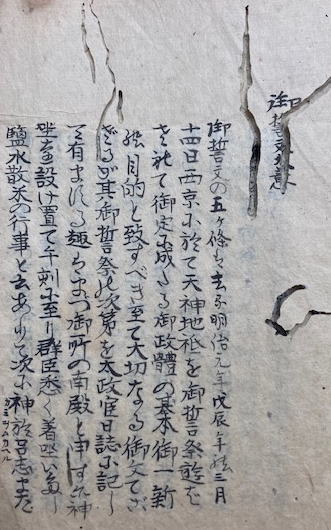 御誓文大意
御誓文の五ヶ條は去る明治元年戊辰年の三月
十四日西京に於て天神地祇を御誓祭遊ば
され て御定に成たる御政體の基本御一新
の御目的と致すべき至て大切なる御文でご
ざるが其御誓祭の次第を太政官日誌に記し
て有まする趣はまづ御所の南殿と申しまする神
坐を設け置て午刻に至り群臣悉く着坐 
鹽水散米の行事と云ありて次に神於呂志